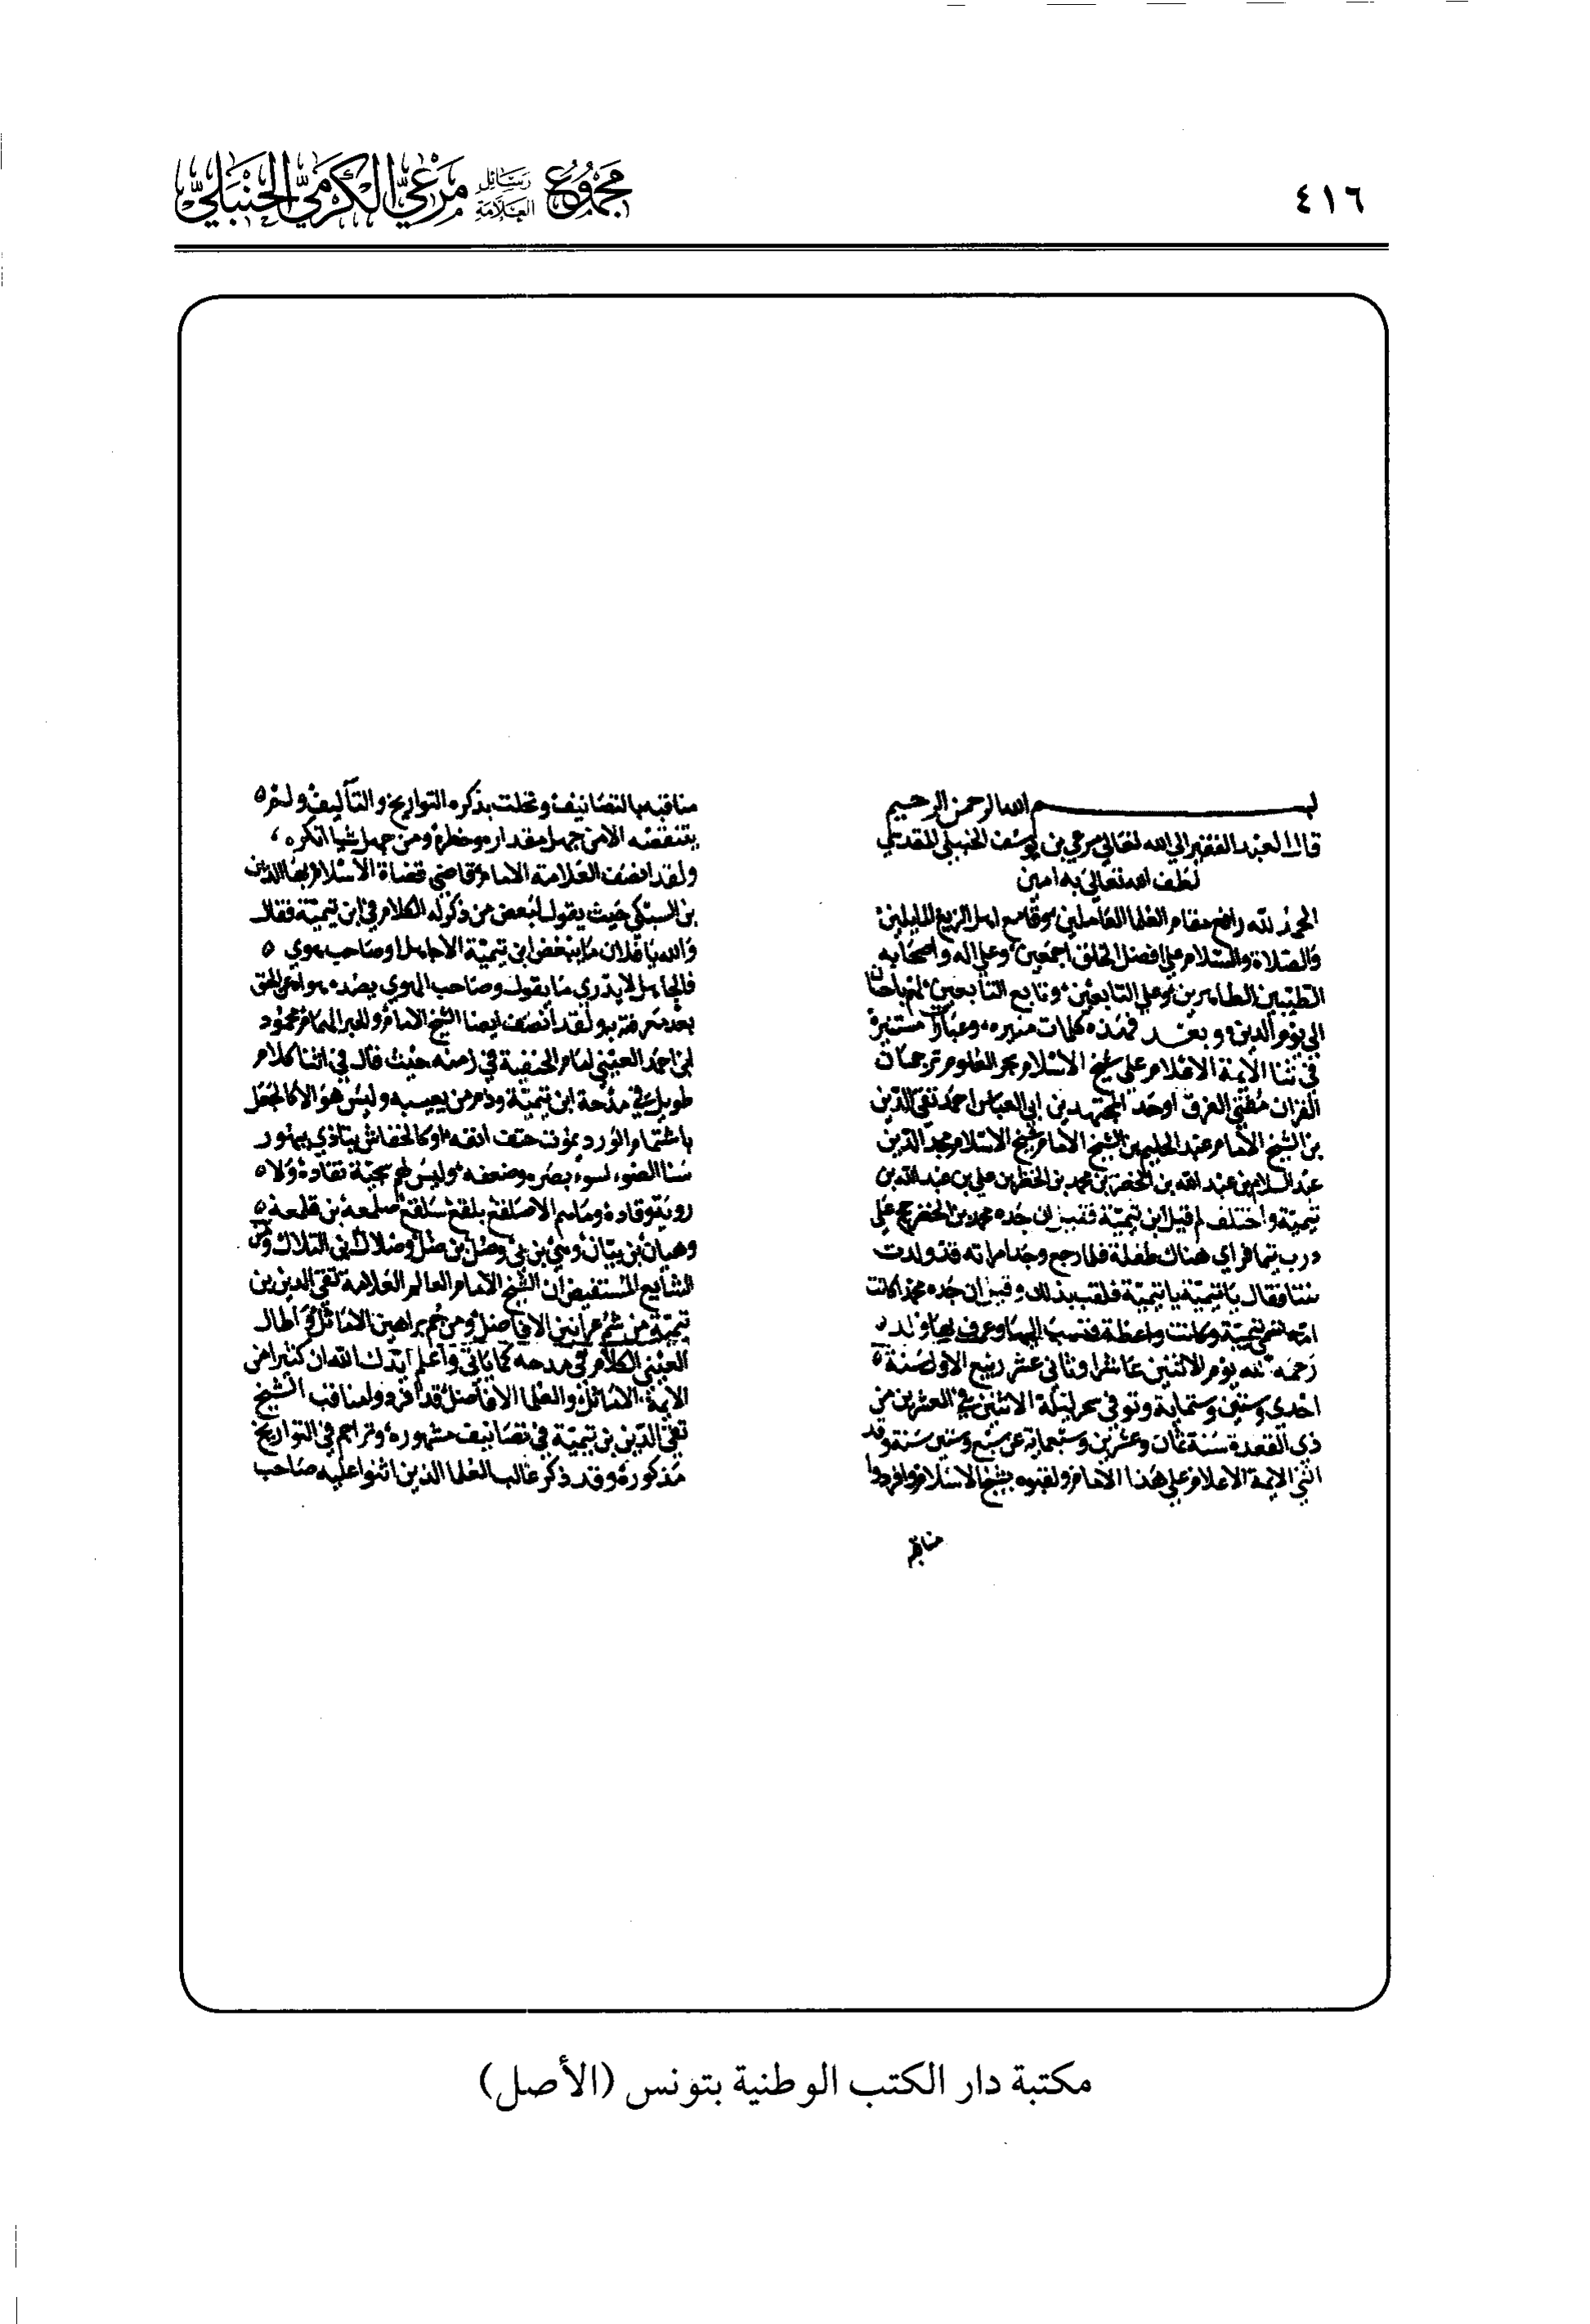 ٤١٦
مجموع رسائل العلامة مرعي الكرمي الحنبلي
بسم الله الرحمن الرحيم
قال العبد الفقير الي الله تعالي مرعي بن يوسف الحنبلي المقدسي
لطف الله تعالي به امين
الحمد لله رافع مقام العلما العاملين وقامع اهل الزيغ
والصلاة والسلام علي افضل الخلق اجمعين وعلي اله واصحابه
الطيبين الطاهرين وعلي التابعين وتابع التابعين لهم باحسان
الي يوم الدين وبعد فهذه كلمات منيره وعبارات مستنيرة
في ثنا الايمة الاعلام علي شيخ الاسلام بحر العلوم ترجمان
القران مفتي الفرق اوحد المجتهدين ابي العباس احمد تقي الدين
بن الشيخ الامام عبد الحليم بن الشيخ الامام شيخ الاسلام مجد الدين
عبد السلام بن عبد الله بن الخضر بن محمد بن الخضر بن علي بن عبد الله بن
تيمية واختلف لم قيل ابن تيمية فقيل ان جده محمد بن الخضر حج علي
درب تيما فراي هناك طفلة فلما رجع وجد امراته قد ولدت
بنتا فقال يا تيمية يا تيمية فلقب بذلك وقيل ان جده محمد كانت
امه تسمي تيمية وكانت واعظة فنسب اليها وعرف بها ولد
رحمه الله يوم الاثنين عاشر او ثاني عشر ربيع الاول سنة
احدي وستين وستماية وتوفي سحر ليلة الاثنين في العشرين من
ذي القعدة سنة ثمان وعشرين وسبعماية عن سبع وستين سنة وقد
اثني الايمة الاعلام علي هذا الامام ولقبوه بشيخ الاسلام وافردوا
مناقبه
مناقبه بالتصانيف وتحلت بذكره التواريخ والتآليف ولم
يتنقصه الا من جهل مقداره وخطره ومن جهل شيا انكره
ولقد انصف العلامة الامام قاضي قضاة الاسلام بها الدين
بن السبكي حيث يقول لبعض من ذكر له الكلام في ابن تيمية فقال
والله يا فلان ما يبغض ابن تيمية الا جاهل او صاحب هوي
فالجاهل لا يدري ما يقول وصاحب الهوي يصده هواه عن الحق
بعد معرفته به ولقد انصف ايضا الشيخ الامام والحبر الهمام محمود
بن احمد العيني امام الحنفية في زمنه حيث قال في اثنا كلام
طويل في مدحة ابن تيمية وذم من يعيبه وليس هو الا كالجعل
باشتمام الورد يموت حتف انفه او كالخفاش يتاذي ببهور
سنا الضوء لسوء بصره وضعفه وليس لهم سجية نقادة ولا
روية وقادة وما هم الا صلقع بلقع سلقع صلمعة بن قلمعة
وهيان بن بيان وهي بن بي وضل بن ضل وضلال بن التلال ومن
الشايع المستفيض ان الشيخ الامام العالم العلامة تقي الدين بن
تيمية من شم عرانين الافاضل ومن جم براهين الاماثل واطال
العيني الكلام في مدحه كما ياتي واعلم ايدك الله ان كثيرا من
الايمة الاماثل والعلما الافاضل قد افردوا مناقب الشيخ
تقي الدين بن تيمية في تصانيف مشهورة وتراجم في التواريخ
مذكورة وقد ذكر غالب العلما الذين اثنوا عليه صاحب
مكتبة دار الكتب الوطنية بتونس (الأصل)